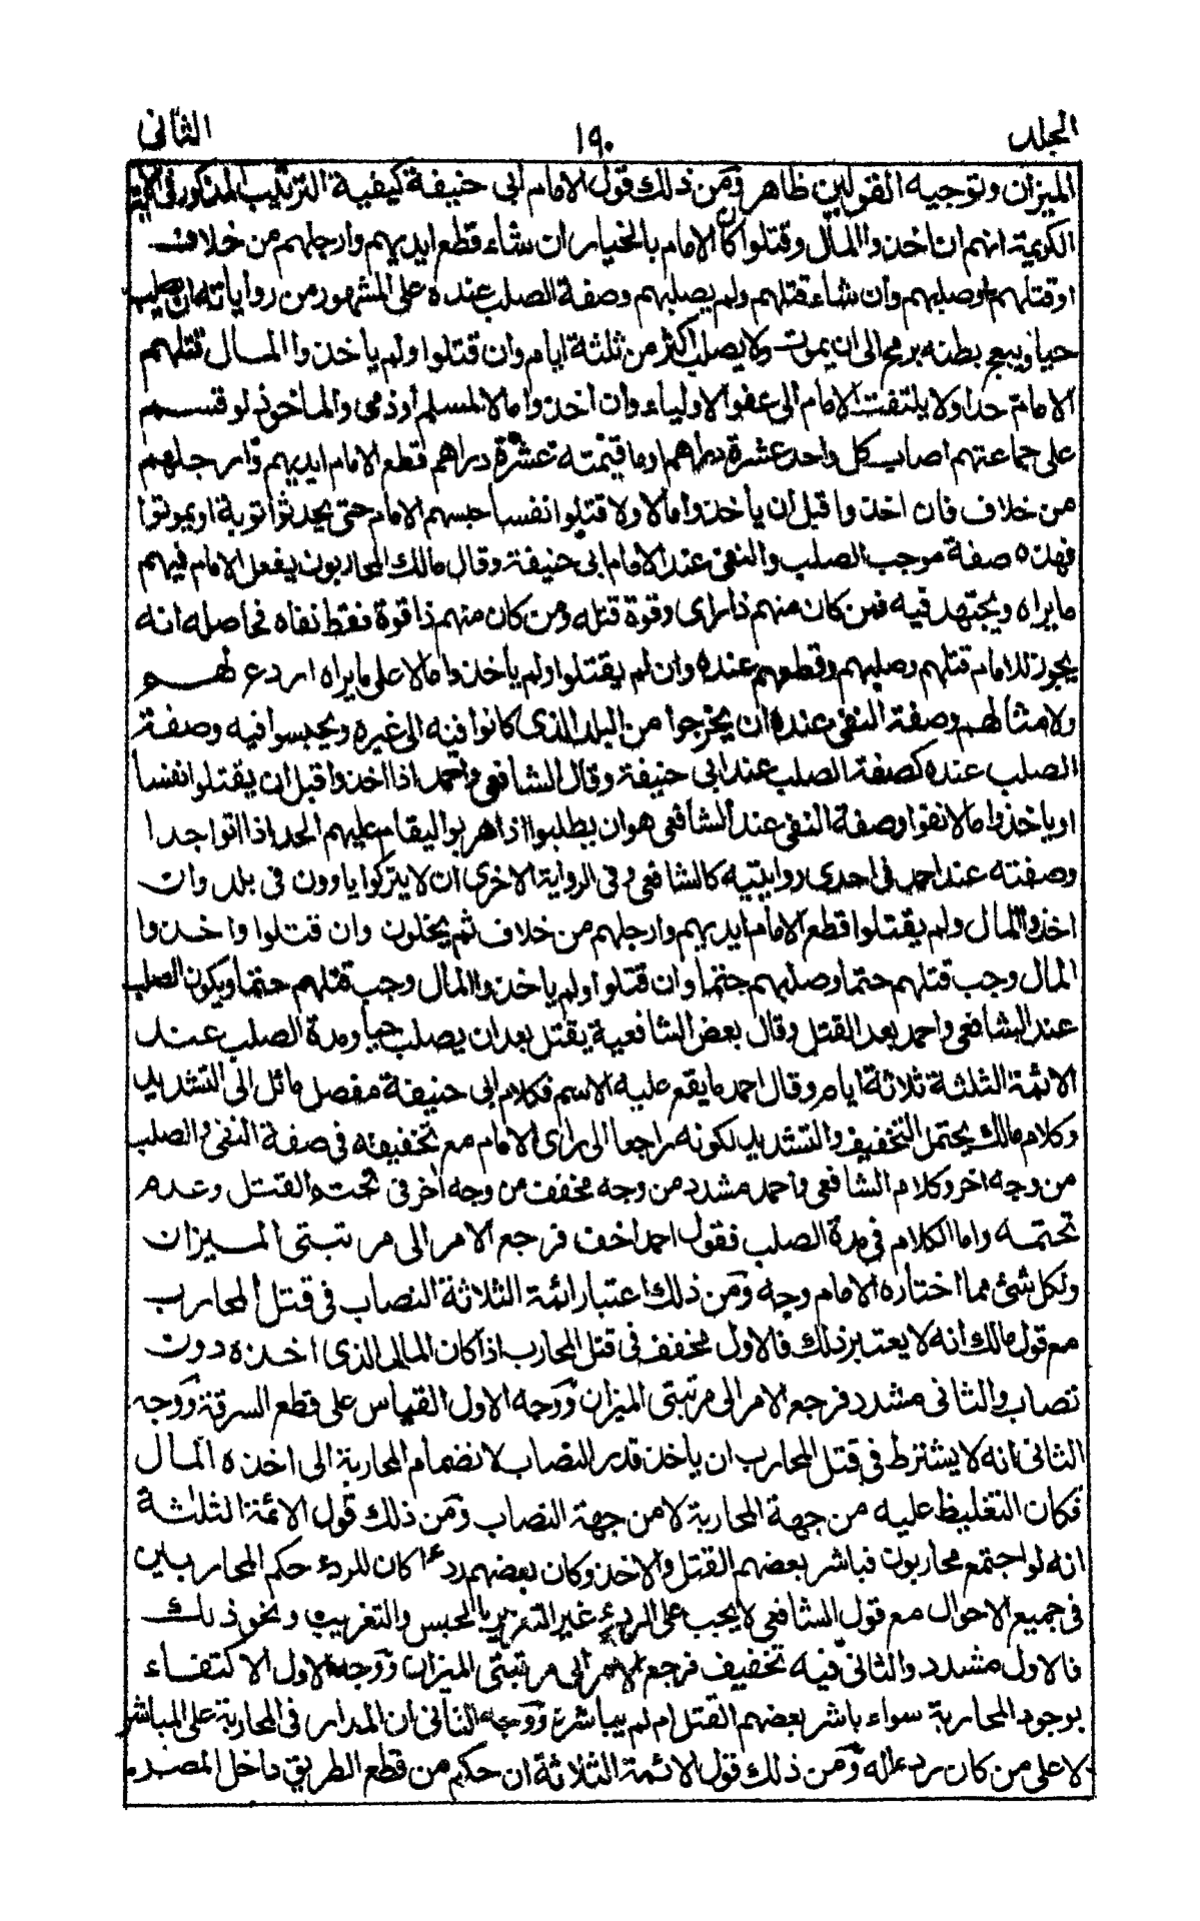 المجلد ١٩٠ الثانى
الميزان وتوجيه القولين ظاهر ومن ذلك قول الامام ابى حنيفة كيفية الترتيب المذكور فى الآية
الكريمة انهم ان اخذوا المال وقتلوا كان الامام بالخيار ان شاء قطع ايديهم وارجلهم من خلاف
او قتلهم وصلبهم وان شاء قتلهم ولم يصلبهم وصفة الصلب عنده على المشهور من رواياته ان يصلب
حيا ويبعج بطنه برمح الى ان يموت ولا يصلب اكثر من ثلثة ايام وان قتلوا ولم ياخذوا المال قتلهم
الامام حدا ولا يلتفت الامام الى عفو الاولياء وان اخذوا مالا لمسلم او ذمى والماخوذ لو قسم
على جماعتهم اصاب كل واحد عشرة دراهم او ما قيمته عشرة دراهم قطع الامام ايديهم وارجلهم
من خلاف فان اخذوا قبل ان ياخذوا مالا ولا قتلوا نفسا حبسهم الامام حتى يحدثوا توبة او يموتوا
فهذه صفة موجب الصلب والنفى عند الامام ابى حنيفة وقال مالك المحاربون يفعل الامام فيهم
ما يراه ويجتهد فيه فمن كان منهم ذا راى وقوة قتله ومن كان منهم ذا قوة فقط نفاه فحاصله انه
يجوز للامام قتلهم وصلبهم وقطعهم عنده وان لم يقتلوا ولم ياخذوا مالا على ما يراه اردع لهم
ولامثالهم وصفة النفى عنده ان يخرجوا من البلد الذى كانوا فيه الى غيره ويحبسوا فيه وصفة
الصلب عنده كصفة الصلب عند ابى حنيفة وقال الشافعى واحمد اذا اخذوا قبل ان يقتلوا نفسا
او ياخذوا مالا نفوا وصفة النفى عند الشافعى هو ان يطلبوا اذا هربوا ليقام عليهم الحد اذا اتوا حدا
وصفته عند احمد فى احدى روايتيه كالشافعى وفى الرواية الاخرى ان لا يتركوا ياوون فى بلد وان
اخذوا المال ولم يقتلوا قطع الامام ايديهم وارجلهم من خلاف ثم يخلون وان قتلوا واخذوا
المال وجب قتلهم حتما وصلبهم حتما وان قتلوا ولم ياخذوا المال وجب قتلهم حتما ويكون الصلب
عند الشافعى واحمد بعد القتل وقال بعض الشافعية يقتل بعد ان يصلب حيا ومدة الصلب عند
الائمة الثلثة ثلاثة ايام وقال احمد ما يقع عليه الاسم فكلام ابى حنيفة مفصل مائل الى التشديد
وكلام مالك يحتمل التخفيف والتشديد لكونه راجعا الى راى الامام مع تخفيفه فى صفة النفى والصلب
من وجه اخر وكلام الشافعى واحمد مشدد من وجه مخفف من وجه اخر فى تحتم القتل وعدم
تحتمه واما الكلام فى مدة الصلب فقول احمد اخف فرجع الامر الى مرتبتى الميزان
ولكل شئ مما اختاره الامام وجه ومن ذلك اعتبار ائمة الثلاثة النصاب فى قتل المحارب
مع قول مالك انه لا يعتبر ذلك فالاول مخفف فى قتل المحارب اذا كان المال الذى اخذه دون
نصاب والثانى مشدد فرجع الامر الى مرتبتى الميزان ووجه الاول القياس على قطع السرقة ووجه
الثانى انه لا يشترط فى قتل المحارب ان ياخذ قدر النصاب لانضمام المحاربة الى اخذه المال
فكان التغليظ عليه من جهة المحاربة لا من جهة النصاب ومن ذلك قول الائمة الثلثة
انه لو اجتمع محاربون فباشر بعضهم القتل والاخذ وكان بعضهم ردءا كان للردء حكم المحاربين
فى جميع الاحوال مع قول الشافعى لا يجب على الردء غير التعزير بالحبس والتغريب ونحو ذلك
فالاول مشدد والثانى فيه تخفيف فرجع الامر الى مرتبتى الميزان ووجه الاول الاكتفاء
بوجود المحاربة سواء باشر بعضهم القتل ام لم يباشره ووجه الثانى ان المدار فى المحاربة على المباشر
لا على من كان ردءا له ومن ذلك قول الائمة الثلاثة ان حكم من قطع الطريق داخل المصر